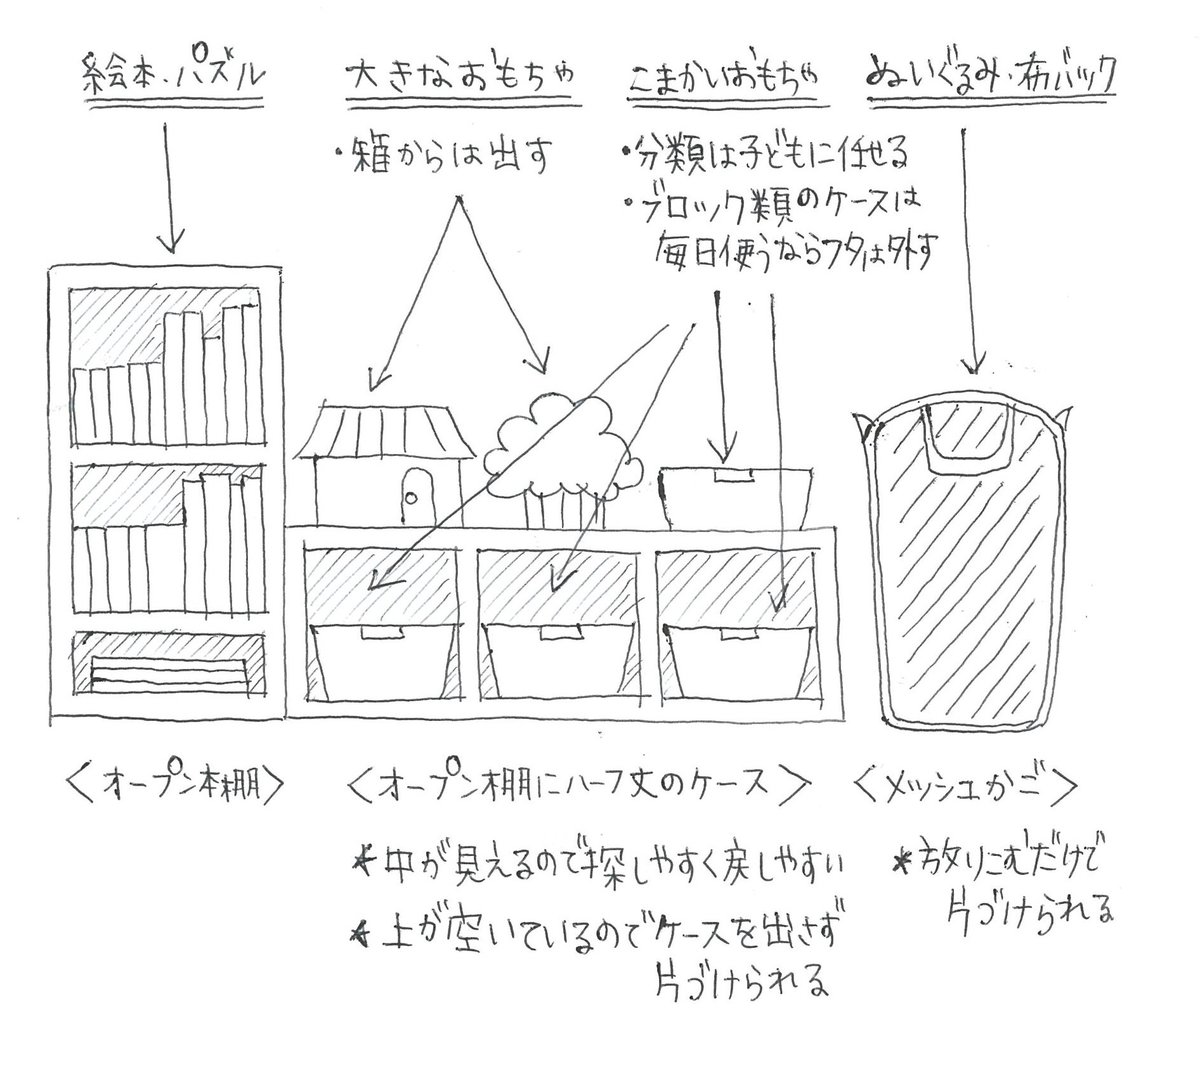 絵本・パズル
大きなおもちゃ
・箱からは出す
こまかいおもちゃ
・分類は子どもに任せる
・ブロック類のケースは
毎日使うならフタは外す
ぬいぐるみ・布バック
<オープン本棚>
<オープン棚にハーフ丈のケース>
*中が見えるので探しやすく戻しやすい
*上が空いているのでケースを出さず
片づけられる
<メッシュかご>
*放りこむだけで
片づけられる